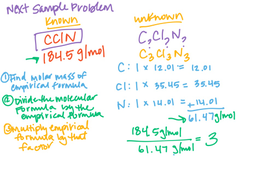 Next Sample Problem
known
unknown
CClN
C?Cl?N?
184.5 g/mol
C3Cl3N3
① Find molar mass of
empirical formula
C: 1 x 12.01 = 12.01
Cl: 1 x 35.45 = 35.45
② Divide the molecular
formula by the
empirical formula
N: 1 x 14.01 = +14.01
61.47 g/mol
③ multiply empirical
formula by that
factor
184.5 g/mol
61.47 g/mol
= 3